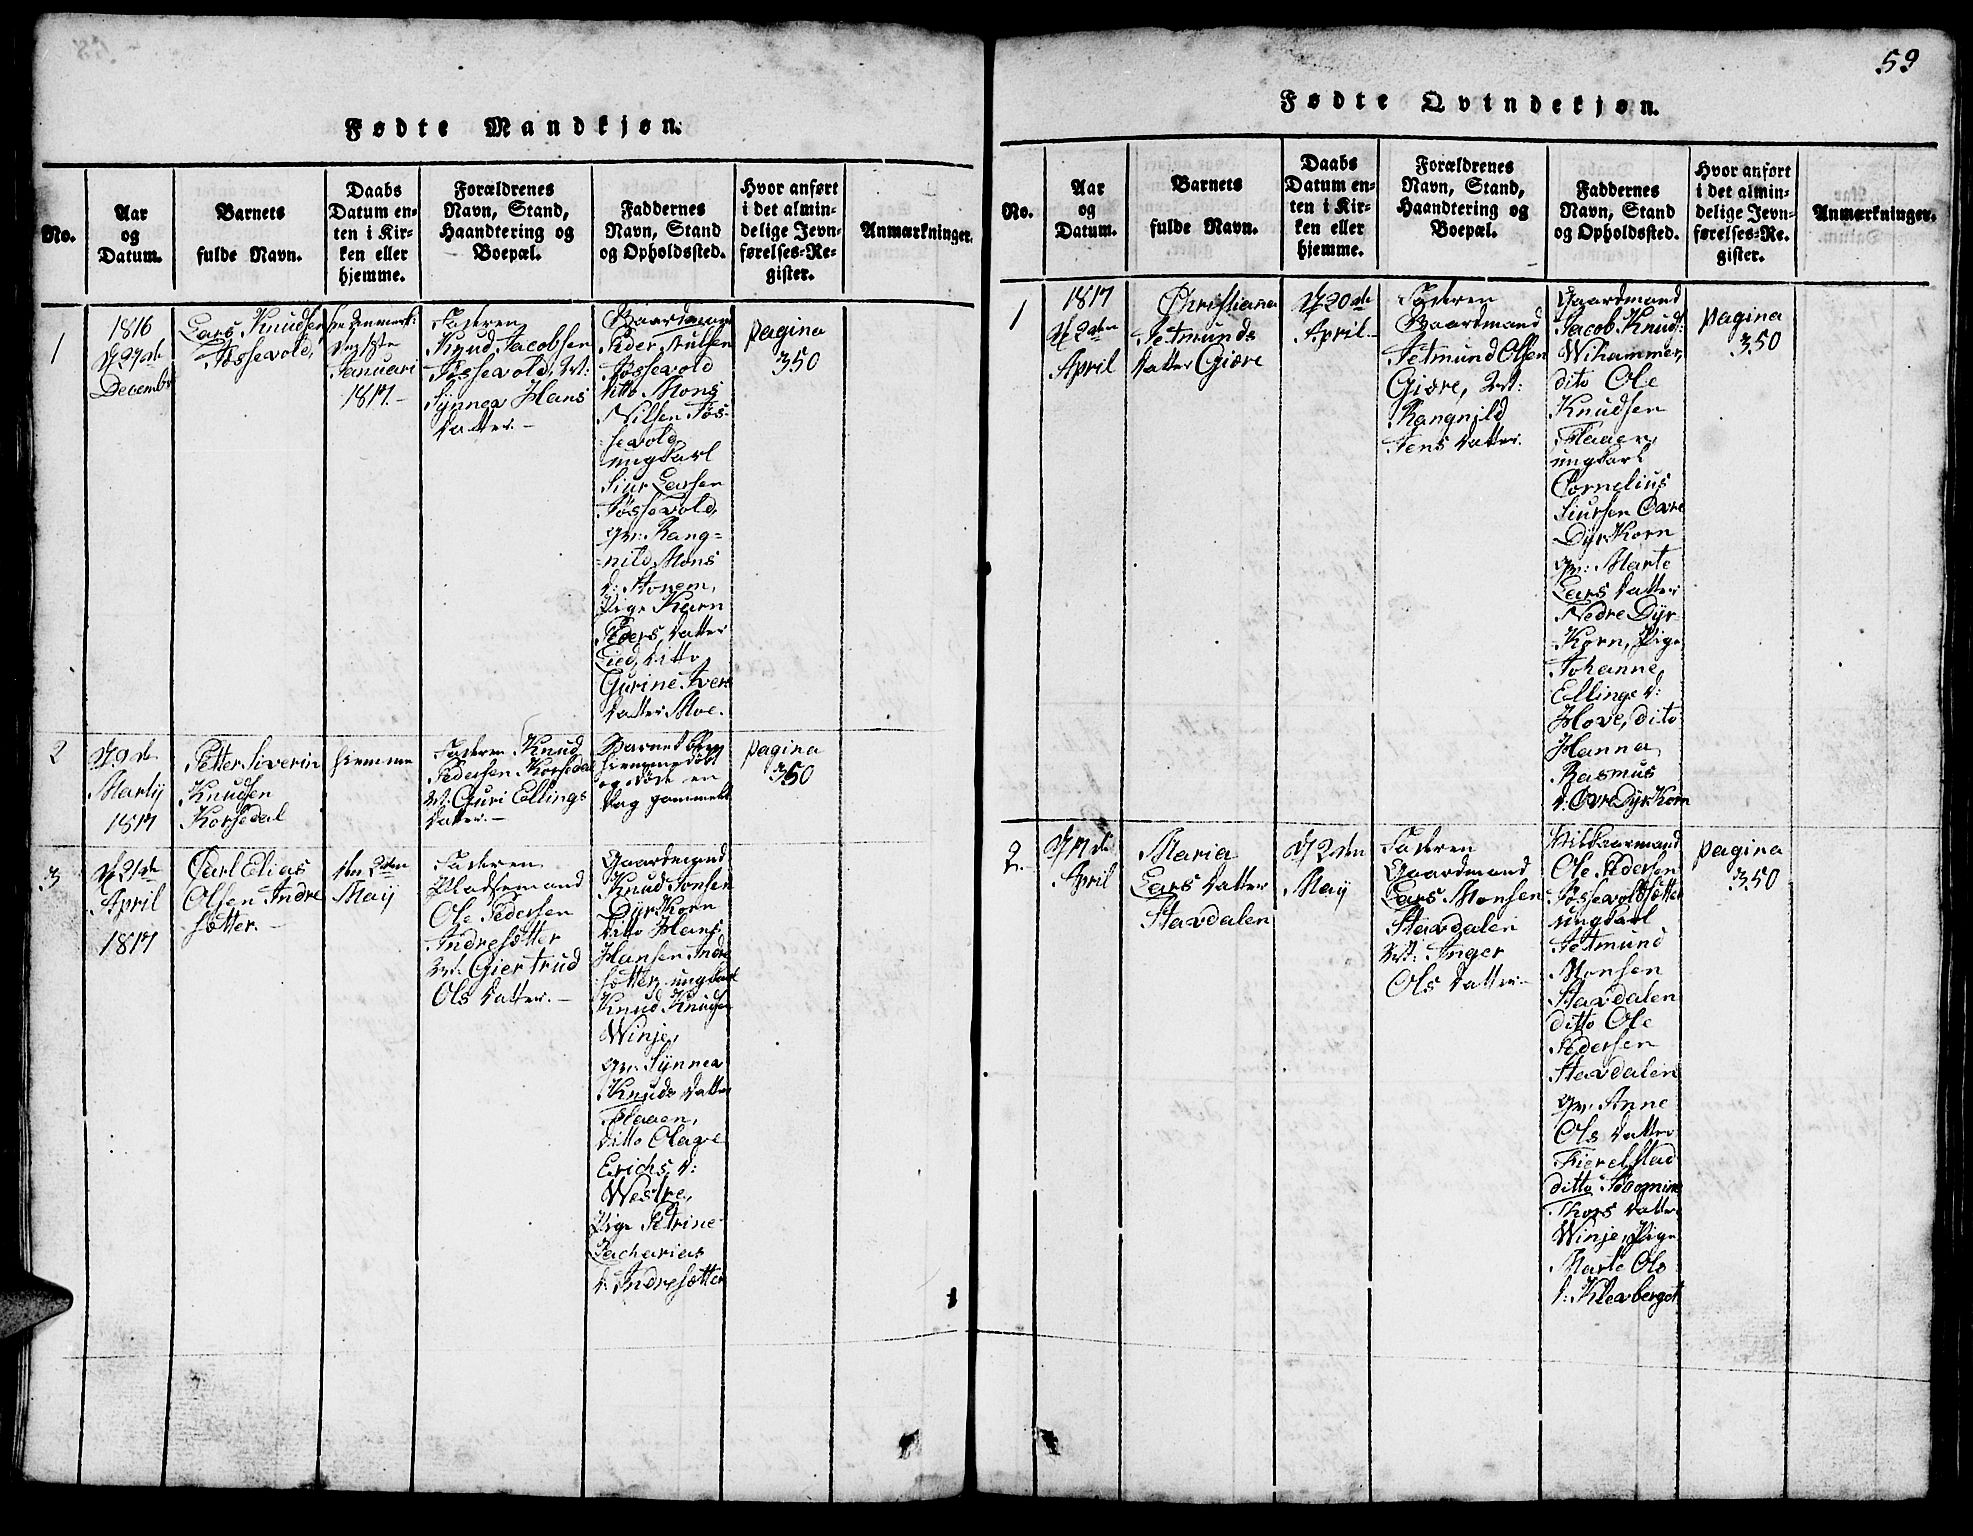 59
Fødte Mandkjøn.
No.
Aar
og
Datum.
Barnets
fulde Navn.
Daabs
Datum en-
ten i Kir-
ken eller
hjemme.
Forældrenes
Navn, Stand,
Haandtering og
Boepæl.
Faddernes
Navn, Stand
og Opholdssted.
Hvor anført
i det almin-
delige Jevn-
førelses-Re-
gister.
Anmærkninger.
1
1816
27de
Decembr
Lars Knudsen
Tøssevold,
1ste
Januari
1817.-
Faderen
Knud Jacobsen
Tøssevold,
Synnev Hans
Datter.-
Gaardmand
Peder Nilsen
Tøssevold
ditto Mons
Nilsen Tøs-
sevold,
ungkarl
Siur Larsen
Tøssevold,
Rang=
=nild Mons
d: Honem,
Pige Karn
Peders datter
Eid, ditto
Gurine Ivers
datter Moe.
pagina
350
2
9de
Martij
1817
Petter Siverin
Knudsen
Korsedal
hiemme
Faderen Knud
Pedersen Korsedal
Guri Ellings
datter.-
Barnet blev
hiemmedøbt
og døde en
dag gammelt
pagina
350
3
21de
April
1817
Carl Elias
Olsen Indre
sætter.-
den 2den
Maij
Faderen
Pladsemand
Ole Pedersen
Indresætter
Giertrud
Ols datter.-
Gaardmand
Knud Jonsen
Dyrkorn
ditto Hans
Hansen Indre
sætter, ungkarl
Knud Knudsen
Winje,
Synnev
Knuds datter
Flaaen,
ditto Olave
Erichs d:
Westre,
Pige Petrine
Zacharias
d: Indresætter
Fødte Qvindekjøn.
No.
Aar
og
Datum.
Barnets
fulde Navn.
Daabs
Datum en-
ten i Kir-
ken eller
hjemme.
Forældrenes
Navn, Stand,
Haandtering og
Boepæl.
Faddernes
Navn, Stand
og Opholdssted.
Hvor anført
i det almin-
delige Jevn-
førelses-Re-
gister.
Anmærkninger.
1
1817
2den
April
Christiana
Setmunds
datter Giære
20de
April.-
Faderen
Gaardmand
Setmund Olsen
Giære,
Rangnild
Jens datter.
Gaardmand
Jacob Knud:
Wihammer,
dito Ole
Knudsen
Flaaen,
ungkarl
Cornelius
Siursen Øvre
Dyrkorn
Marte
Lars datter
Nedre Dyr-
korn, Pige
Johanne
Ellinge d:
Hove, dito
Hanna
Rasmus
d: Øvre Dyrkorn
pagina
350
2
17de
April
Maria
Lars datter
Stavdalen
2den
Maij
Faderen
Gaardmand
Lars Monsen
Stavdalen
Inger
Ols datter-
Ole Pedersen
Tøssevoldsætter
ungkarl
Setmund
Monsen
Stavdalen
ditto Ole
Pedersen
Stavdalen
Anne
Ols datter
Fierelstad
ditto
Thors datter
Winje, Pige
Marte Ols
d:
pagina
350